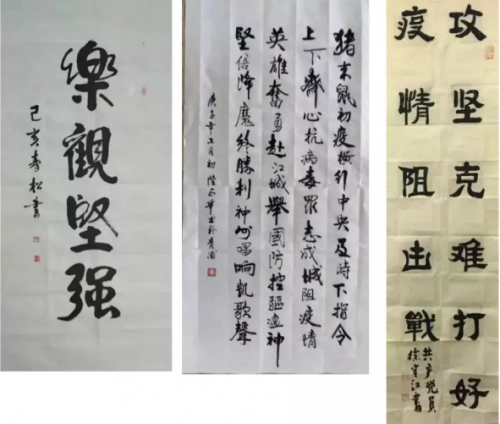 樂觀堅强
己亥秀松書
猪末鼠初疫横行中央及時下指令
上下齊心抗病毒眾志成城阻疫情
英雄奮勇赴江城舉國防控驅瘟神
堅信降魔終勝利神州唱响凱歌聲
庚子年正月初陸正華書於青浦
攻坚克难打好
疫情阻击戰
共产党员
徐宝江書